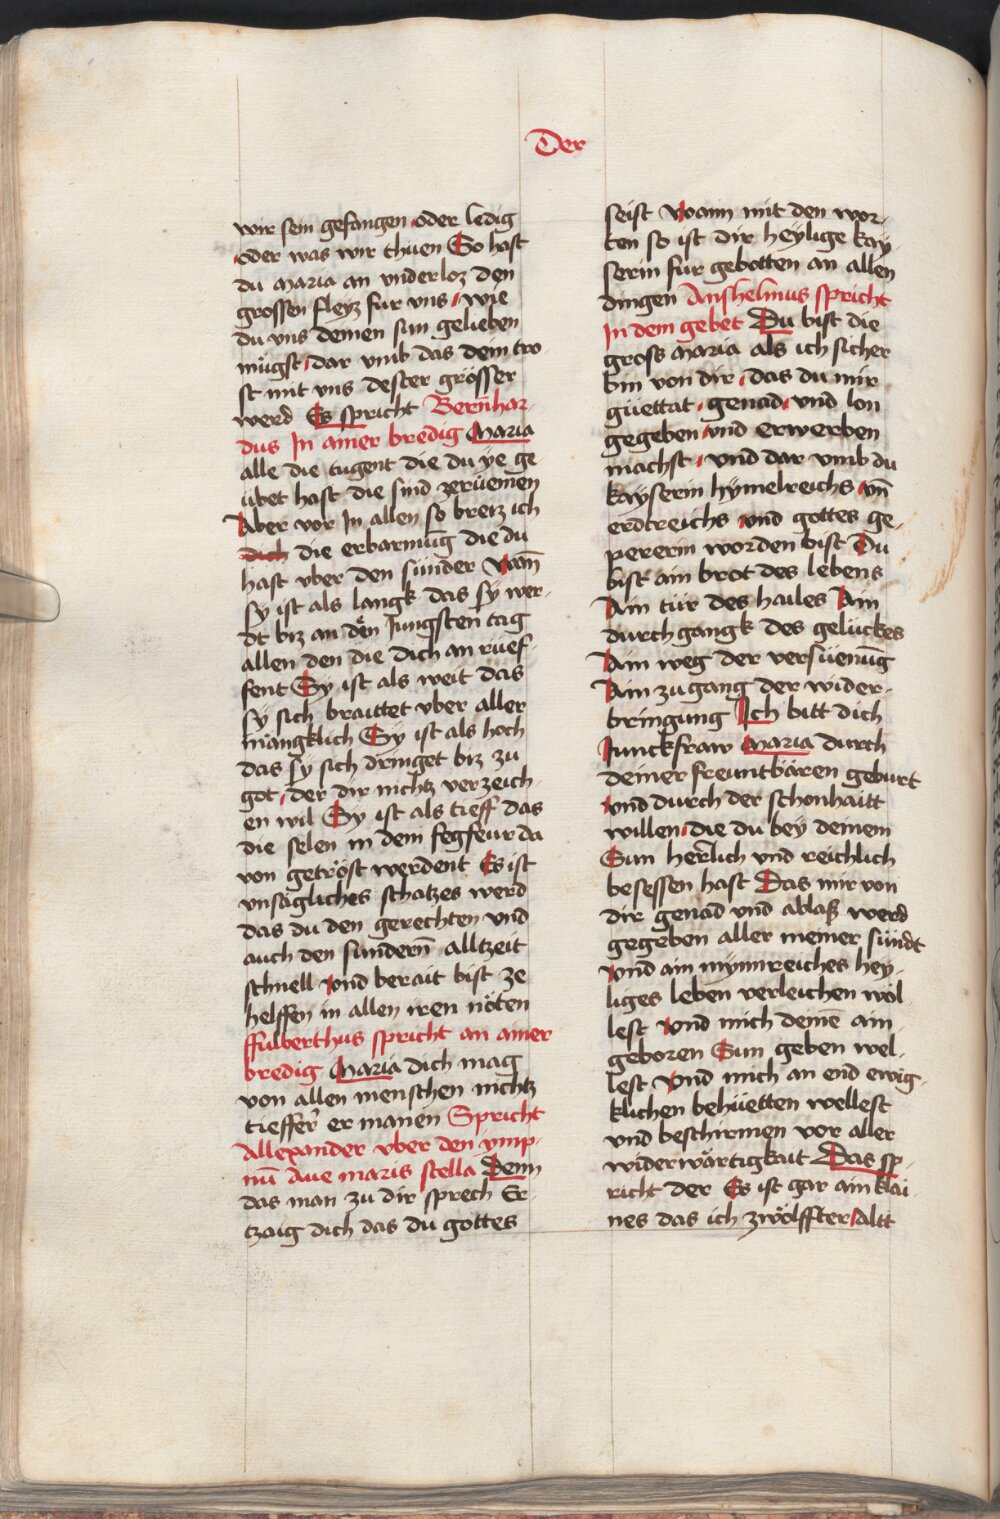 Der
wir sein gefangen oder ledig
oder was wir thuen So hast
du maria an vnderloz den
grossen fleyz fur vns wie
du vns deinen sun gelieben
mügst dar vmb das dein tro
st mit vns dester grösser
werd Es spricht Bernhar
dus In ainer bredig Maria
alle die tugent die du ye ge
übet hast die sind zerüemen
Aber vor In allen so breiz ich
dich die erbarmūg die du
hast vber den sünder Wañ
sy ist als langk das sy wer
dt biz an den Jungsten tag
allen den die dich an rüef
fent Sy ist als weit das
sy sich braittet vber aller
mängklich Sy ist als hoch
das sy sich dringet biz zu
got der dir nichtz verzeich
en wil Sy ist als tieff das
die selen in dem fegfeur da
von getröst werdent Es ist
vnsägliches schatzes werd
das du den gerechten vnd
auch den sundern̄ alltzeit
schnell vnd berait bist ze
helffen in allen iren nöten
ffulberthus spricht an ainer
bredig Maria dich mag
von allen menschen nichtz
tieffer er manen Spricht
Allexander vber den ymp
nū Aue maris stella Denn
das man zu dir sprech Er
tzaig dich das du gottes
seist Wann mit den wor
ten so ist dir heylige kay
serin fur gebotten an allen
dingen Anshelmus spricht
In dem gebet Du bist die
gross maria als ich sicher
bin von dir das du mir
güettat genad vnd lon
gegeben vnd erwerben
machst vnd dar vmb du
kayserin hymelreichs vn̄
erdtreichs vnd gottes ge
pererin worden bist Du
bist ain brot des lebens
Ain tür des hailes Ain
durchgangk des gelückes
Ain weg der versüenūg
Ain zugang der wider
bringung Ich bitt dich
Junckfraw Maria durch
deiner freuntbären geburt
vnd durch der schonhaitt
willen die du bey deinem
Sun herlich vnd reichlich
besessen hast Das mir von
dir genad vnd ablaß werd
gegeben aller meiner sündt
vnd ain mynnreiches hey
liges leben verleichen wöl
lest vnd mich deinē ain
geboren Sun geben wel
lest vnd mich an end ewig
klichen behüetten wellest
vnd beschirmen vor aller
widerwärtigkait Das sp
richt der Es ist gar ain klai
nes das ich zwölffter altt